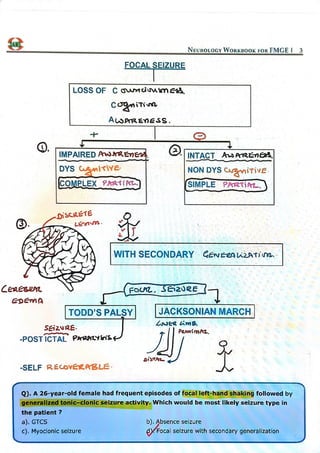 NEUROLOGY WORKBOOK FOR FMGE | 3
FOCAL SEIZURE
LOSS OF Consciousness
Cognition
AWARENESS.
+ −
①. IMPAIRED AWARENESS
DYS Cognitive
COMPLEX PARTIAL
②. INTACT AWARENESS
NON DYS Cognitive
SIMPLE PARTIAL
DISCRETE
LESION
③.
WITH SECONDARY GENERALIZATION.
CEREBRAL
EDEMA
FOCAL SEIZURE
TODD'S PALSY
JACKSONIAN MARCH
SEIZURE
-POST ICTAL PARALYSIS
LOWER LIMB
PROXIMAL
DISTAL
-SELF RECOVERABLE
Q). A 26-year-old female had frequent episodes of focal left-hand shaking followed by
generalized tonic-clonic seizure activity. Which would be most likely seizure type in
the patient ?
a). GTCS b). Absence seizure
c). Myoclonic seizure d) Focal seizure with secondary generalization